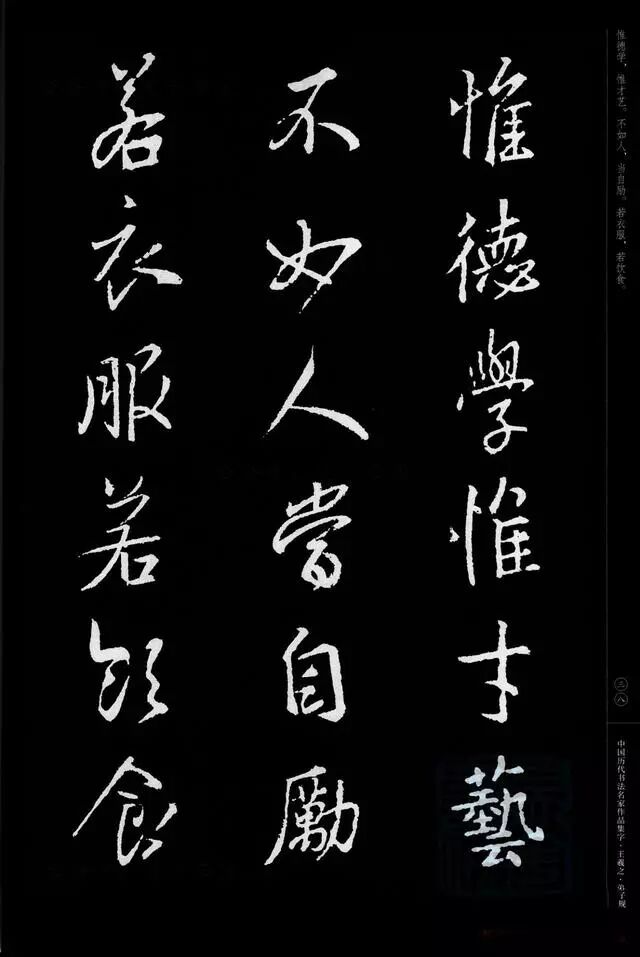 惟德學惟才藝
不如人當自勵
若衣服若飲食
惟德学，惟才艺。不如人，当自励。若衣服，若饮食。
三八
中国历代书法名家作品集字·王羲之·弟子规